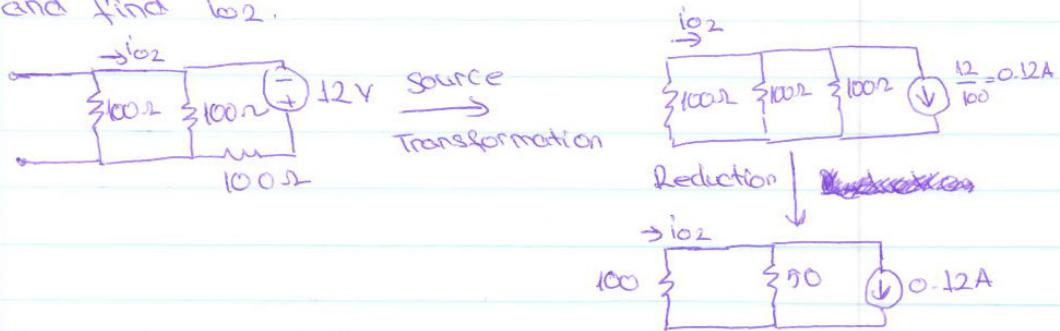 and find io2.
→io2
100Ω
100Ω
- +
12V
100Ω
Source
Transformation
io2
100Ω
100Ω
100Ω
12/100 = 0.12A
Reduction
→io2
100
50
0.12A